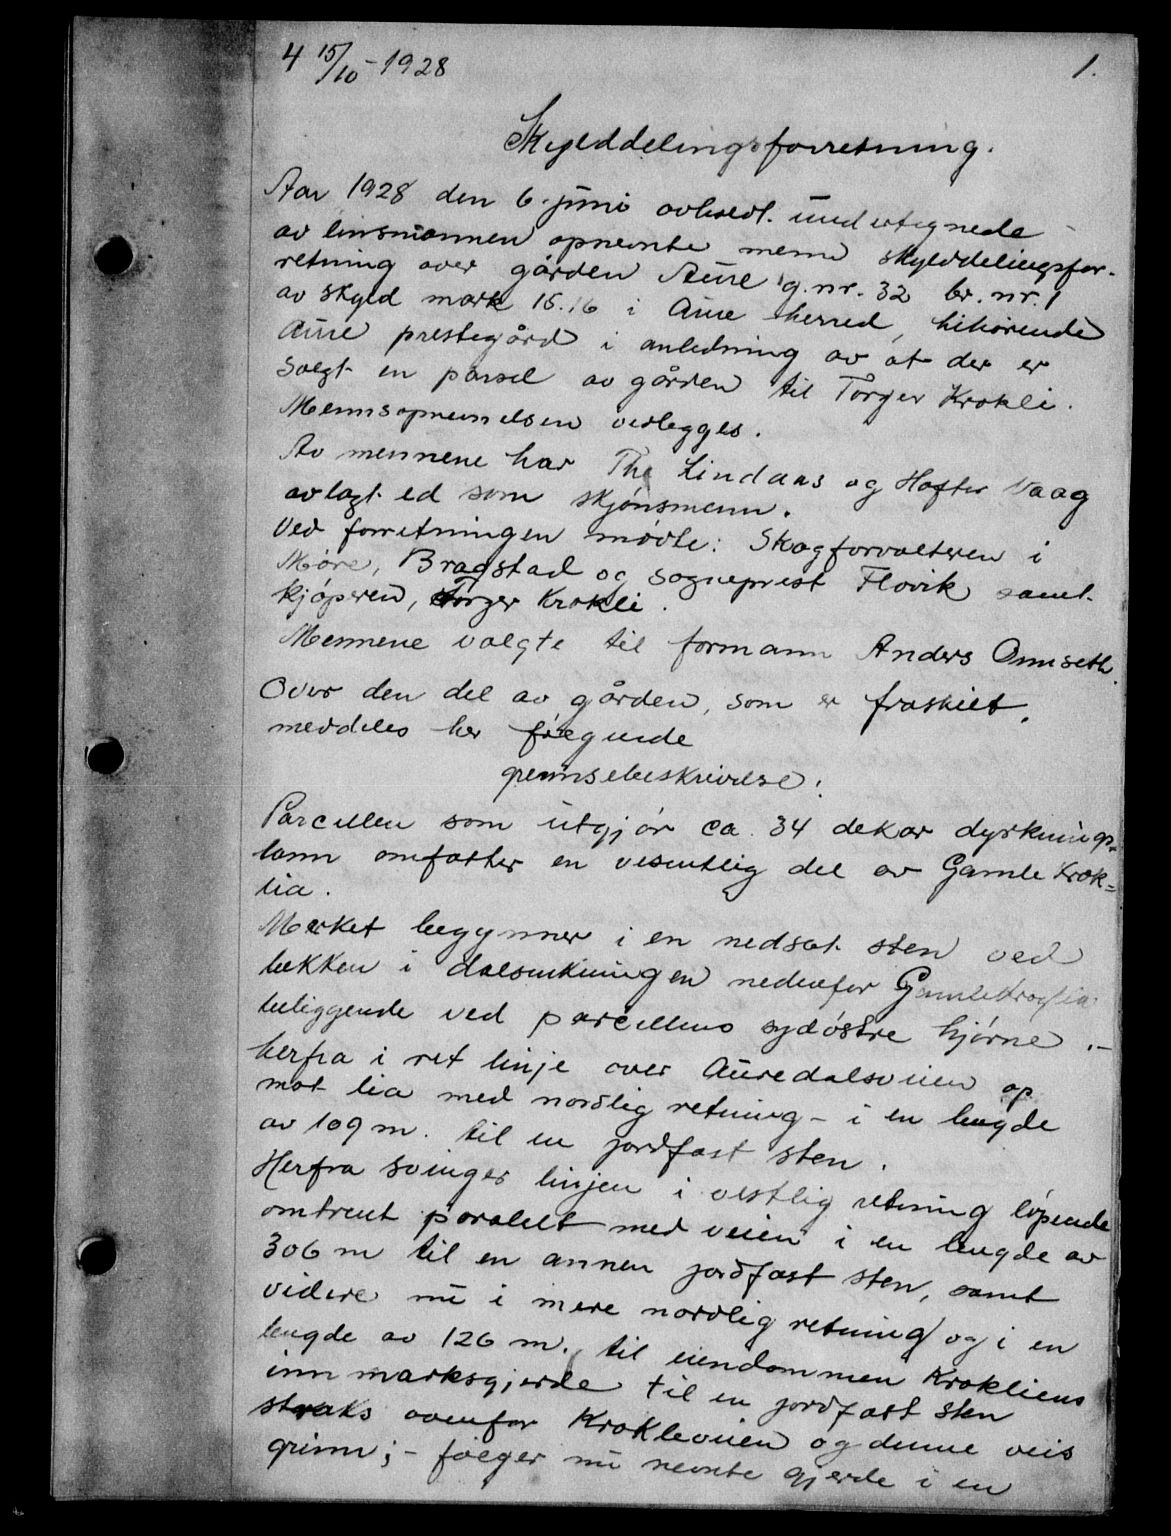 4 15/10-1928
1.
Skylddelingsforretning.
Aar 1928 den 6. juni avholdt undertegnede
av linsmannen opnevnte menn skylddelingsfor-
retning over gården Aure g.nr. 32 br.nr. 1
av skyld mark 15.16 i Aure herred, hihørende
Aure prestegård i anledning av at der er
solgt en parsel av gården til Torger Krokli.
Mennsopnevnelsen vedlegges.
Av mennene har Th. Lindaas og Hafter Vaag
avlagt ed som skjønsmenn.
Ved forretningen møtte: Skogforvalteren i
Møre, Bragstad og sogneprest Flovik samt
kjøperen, Torger Krokli.
Mennene valgte til formann Anders Omseth.
Over den del av gården, som er fraskilt,
meddeles her følgende
grensebeskrivelse:
Parcellen som utgjør ca. 34 dekar dyrknings-
lann omfatter en vesentlig del av Gamle Krok=
lia.
Merket begynner i en nedsat sten ved
bekken i dalsenkningen nedenfor Gamlekroglia
beliggende ved parcellens sydøstre hjørne.-
herfra i ret linje over Auredalsveien op
mot lia med nordlig retning - i en lengde
av 109 m. til en jordfast sten.
Herfra svinger linjen i vestlig retning løpende
omtrent paralelt med veien i en lengde av
306 m til en annen jordfast sten, samt
videre nu i mere nordlig retning og i en
lengde av 126 m. til eiendommen Krokliens
innmarksgjerde til en jordfast sten
straks ovenfor Krokleveien og denne veis
grinn; - følger nu nevnte gjerde i en